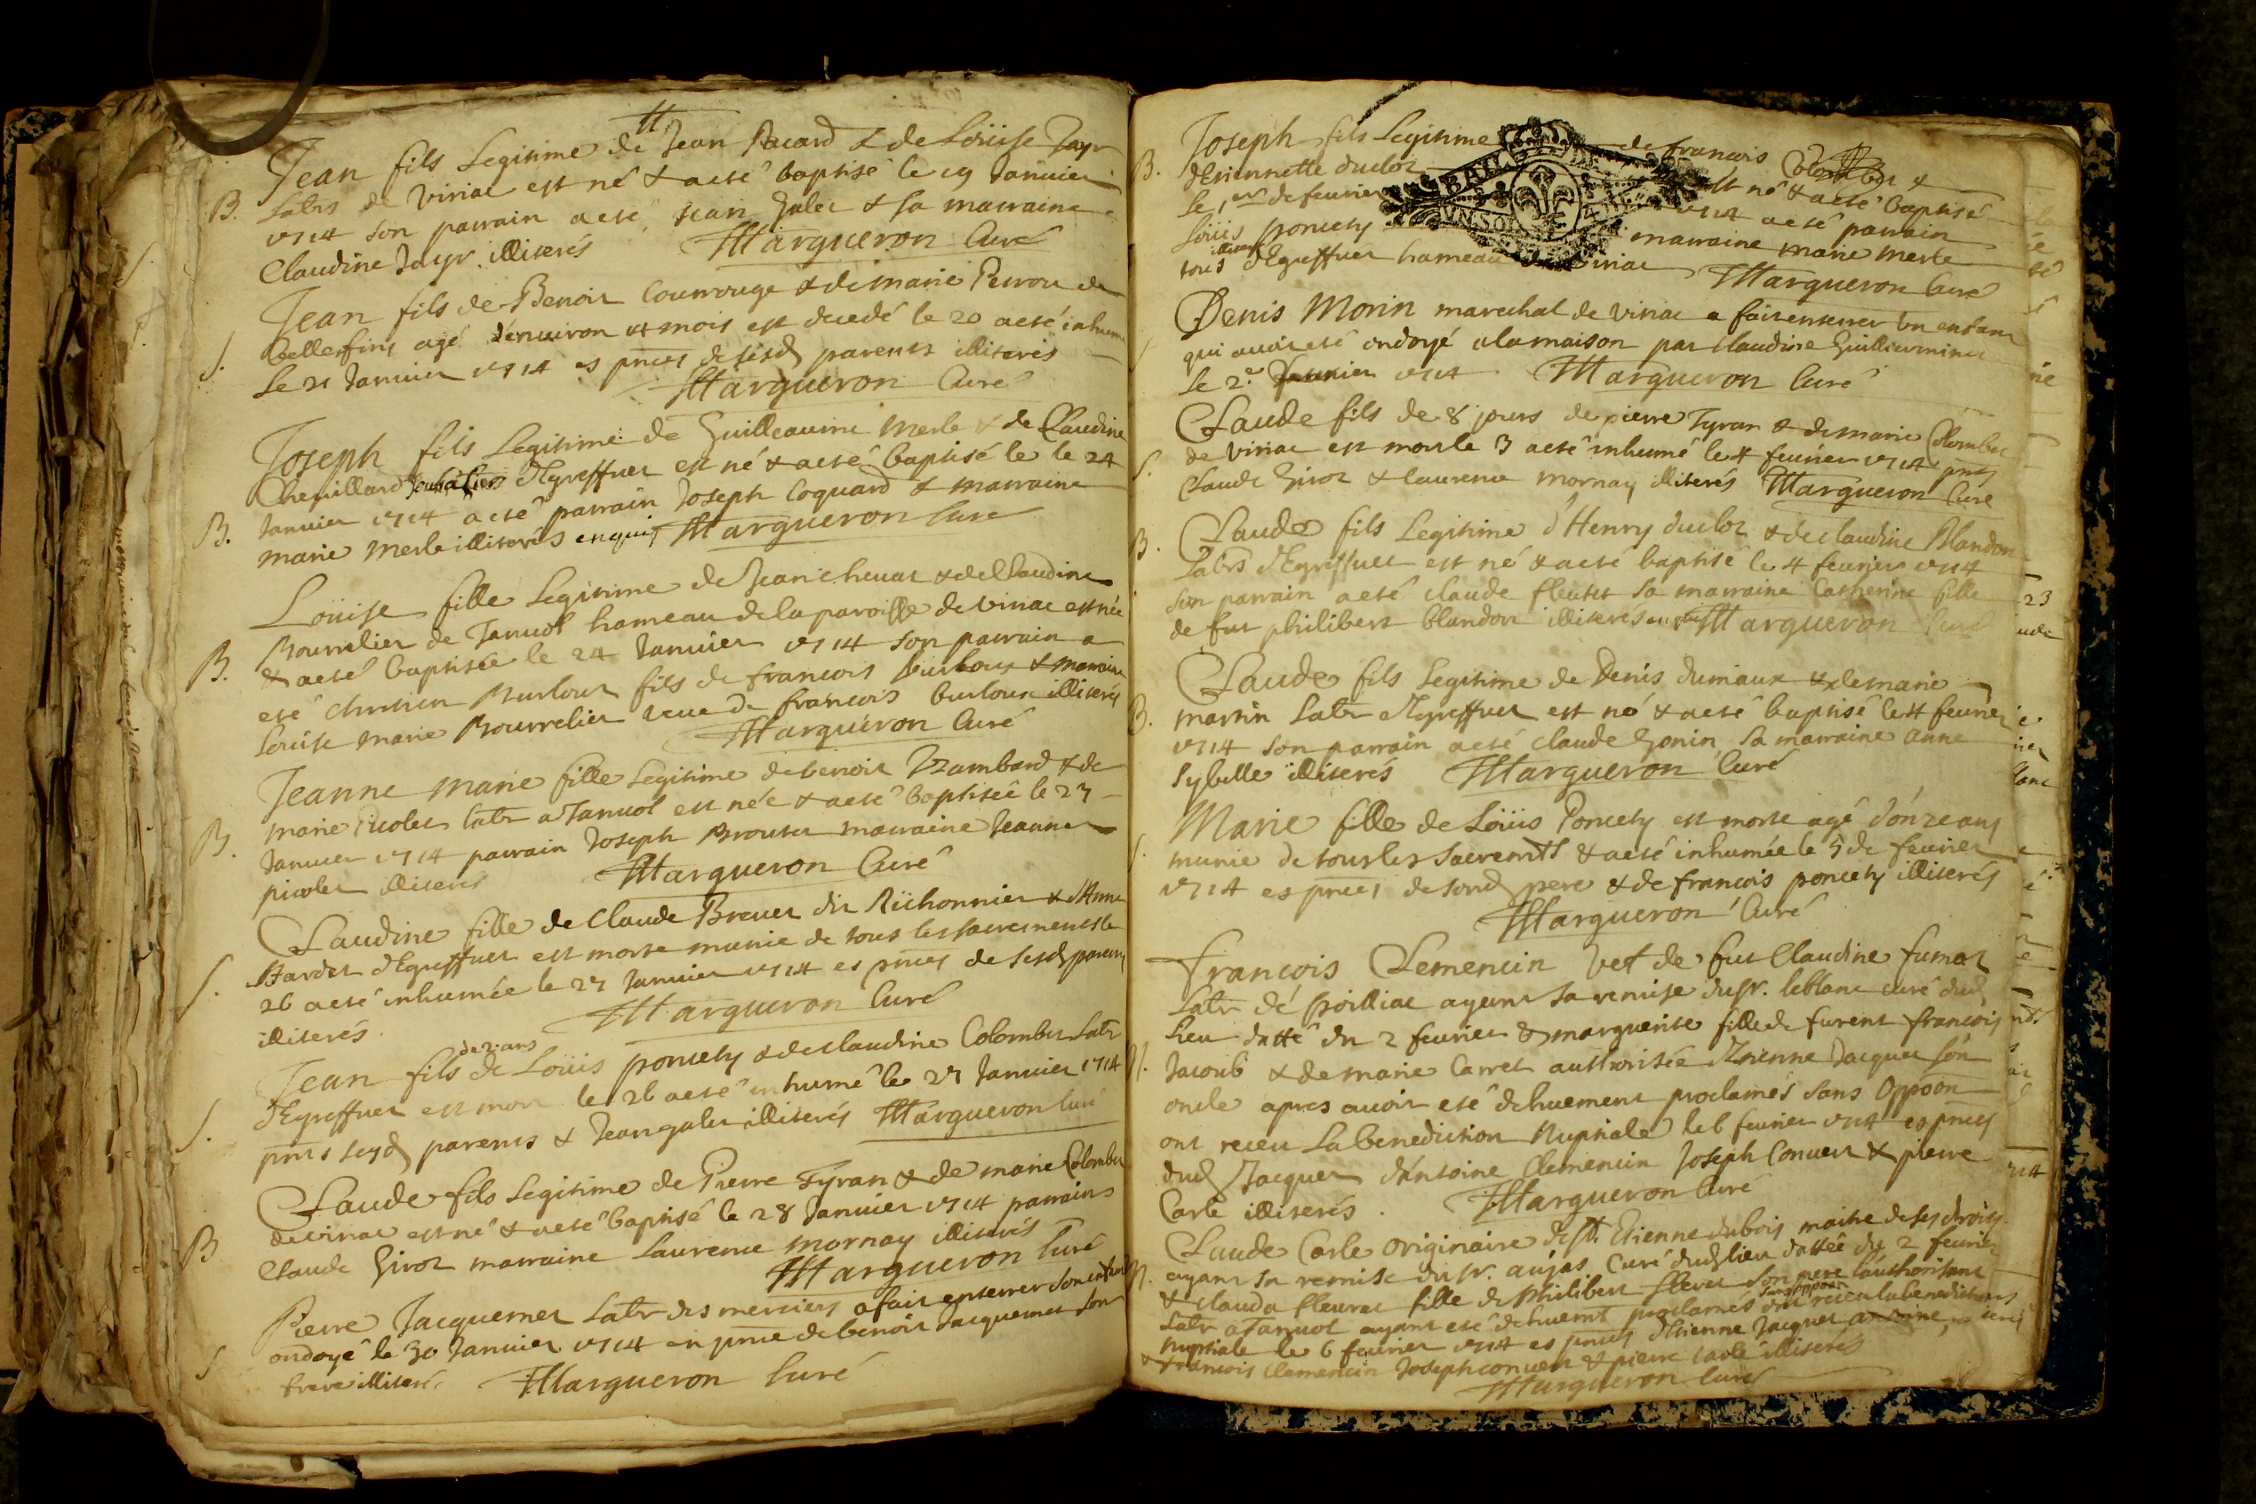 Jean fils Legitime de Jean Pacard & de Loüise Jayr
B. Labrs de Viriac est né & a esté baptisé le 19 Januier
1714 son parrain a esté Jean Galer & sa marraine
Claudine Jayr illiterés Margueron Curé
Jean fils de Benoit Courrouge & de marie Perrou de
S. bellesfins agé d'enuiron mois est decedé le 20 a esté inhumé
Le 21 Januier 1714 es pnces de sesd parents illiterés
Margueron Curé
Joseph fils Legitime de Guilleaume Merle & de Claudine
Cheuillard d'Egreffuer est né & a esté baptisé le le 24
B. Januier 1714 a esté parrain Joseph Coquard & marraine
marie Merle illiterés enquis Margueron Curé
Loüise fille Legitime de Jean cheuat & de Claudine
Bourrelier de Tanuol hameau de la paroisse de viriac est née
B. & a esté baptisée le 24 Januier 1714 son parrain a
esté chretien Burlour fils de francois Burlour & marraine
Loüise marie Bourrelier veue de francois burlour illiterés
Margueron Curé
Jeanne Marie fille Legitime de benoit Rambard & de
marie picolet labr a Tanuol est née & a esté baptisée le 27
B. Januier 1714 parrain Joseph Brouter marraine Jeanne
picolet illiterés Margueron Curé
Claudine fille de Claude Breuet dit Richonnier & d'Anne
Bardet d'Egreffuer est morte munie de tous les sacrements le
S. 26 a esté inhumée le 27 Januier 1714 es pnces de sesd parents
illiterés. Margueron Curé
de 2 ans
Jean fils de Loüis poncety & de Claudine Colomber Labr
d'Egreffuer est mort le 26 a esté inhumé le 27 Januier 1714
S. pnts sesd parents & Jean galer illiterés Margueron Curé
Claude fils Legitime de Pierre Tyran & de marie Colomber
de viriac est né & a esté baptisé le 28 Januier 1714 parrain
B Claude Giroz marraine Laurence mornay illiterés
Margueron Curé
Pierre Jacquemet Labr des merciers a fait enterrer son enfant
ondoyé le 30 Januier 1714 en pnce de benoit Jacquemet son
S frere illiteré. Margueron Curé
Joseph fils Legitime de francois Colomber &
B. d'Etiennette ducloz est né & a esté baptisé
Le 1er de feurier 1714 a esté parrain
Loüis poncety marraine marie merle
illiterés
tous d'Egreffuer hameau de viriac Margueron Curé
Denis Morin marechal de viriac a fait enterrer un enfant
qui auoit esté ondoyé a la maison par Claudine Guilliermines
Le 2e feurier 1714 Margueron Curé
Claude fils de 8 jours de pierre Tyran & de marie Colomber
de viriac est mort le 3 a esté inhumé le 4 feurier 1714 pnts
S. Claude Giroz & laurence mornay illiterés Margueron Curé
Claude fils Legitime d'Henry ducloz & de claudine Blandon
B. Labrs d'Egreffuer est né & a esté baptisé le 4 feurier 1714
son parrain a esté claude fleuret sa marraine Catherine fille
de fut philibert blandon illiterés enquis Margueron Curé
Claude fils Legitime de Denis dumaux & de marie
B. martin Labr d'Egreffuer est né & a esté baptisé le 4 feurier
1714 son parrain a esté claude Gonin, sa marraine anne
Sybelle illiterés Margueron Curé
Marie fille de Loüis Poncety est morte agé d'onze ans
S. munie de tous les sacremts & a esté inhumée le 5 de feurier
1714 es pnces de sond pere & de francois poncety illiterés
Margueron Curé
François Clemencin vef de fut Claudine fumat
Labr de poilliac ayant sa remise du Sr. leblanc curé dud
Lieu datté du 2 feurier & marguerite fille de furent francois
M. Jacoub & de marie Carret authorisée d'Etienne Jacquet son
oncle apres auoir esté dehuement proclamés sans Oppoon
ont receu La benediction Nuptiale le 6 feurier 1714 es pnces
dud Jacquet d'Antoine Clemencin Joseph Conuert & pierre
Carle illiterés. Margueron Curé
Claude Carle originaire de St. Etienne du bois maitre de ses droits
M. ayant sa remise du Sr. aujas Curé dud lieu dattée du 2 feurier
& claude fleuret fille de Philibert fleuret son pere l'authorisant
sans oppoon
Labr a Tanuol ayant esté dehuemt proclamés ont receu la benediction
Nuptiale le 6 feurier 1714 es pnces d'Etienne Jacquet antoine
& francois Clemencin Joseph conuert & pierre carle illiterés
Margueron Curé